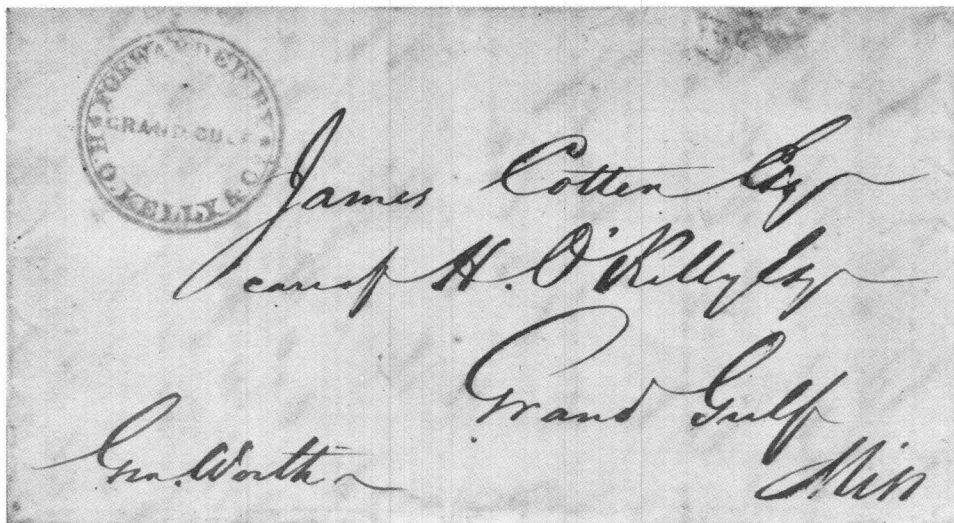 FORWARDED BY
GRAND GULF
H. O. KELLY & CO.
James Cotten Esqr
care of H. O'Kelly Esqr
Grand Gulf
Miss
Gen. Worth